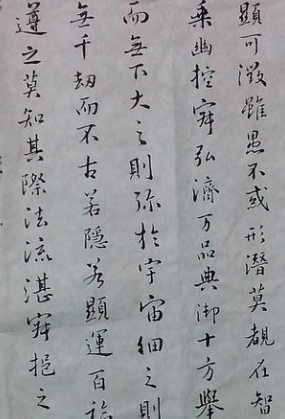 顯可徵雖愚不惑形潛莫覩在智
乘幽控寂弘濟万品典御十方舉
而無下大之則弥於宇宙細之則
無千劫而不古若隱若顯運百福
遵之莫知其際法流湛寂挹之